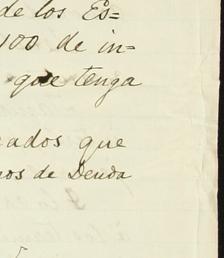 de los Es=
100 de in=
que tenga
cados que
nos de Deuda